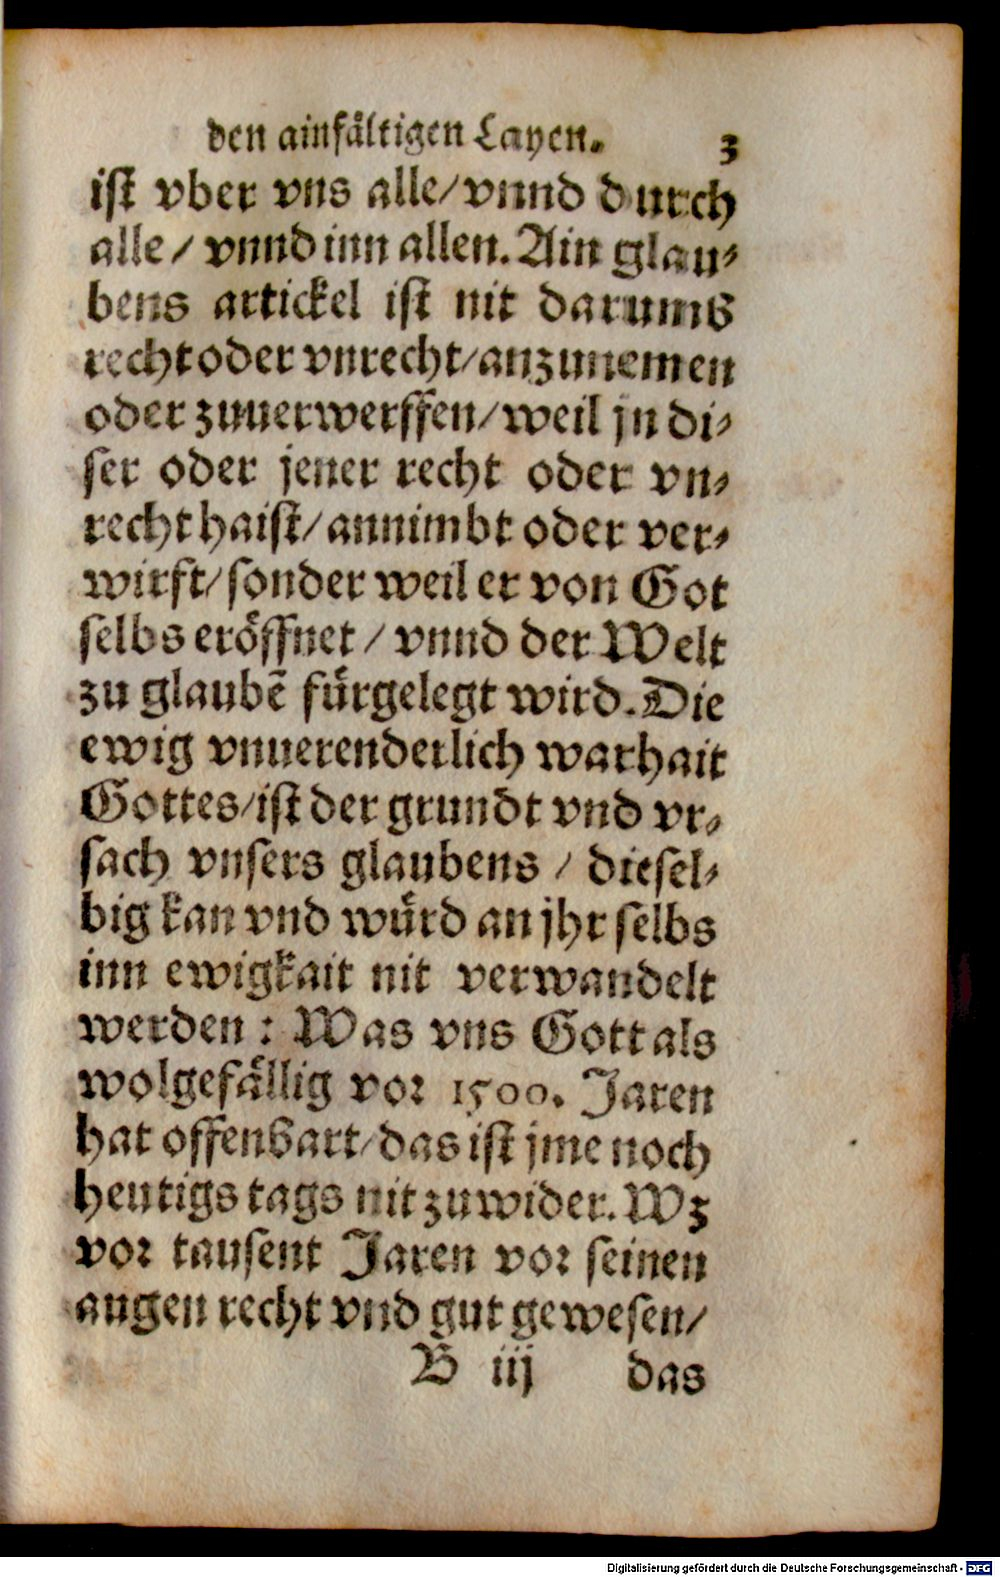 den ainfåltigen Layen. 3
ist vber vns alle/vnnd durch
alle/ vnnd inn allen. Ain glau⸗
bens artickel ist nit darumb
recht oder vnrecht/anzunemen
oder zuuerwerffen/weil jn di⸗
ser oder jener recht oder vn⸗
recht haist/annimbt oder ver⸗
wirft/sonder weil er von Got
selbs eröffnet / vnnd der Welt
zu glaubē fürgelegt wird. Die
ewig vnuerenderlich warhait
Gottes/ist der grundt vnd vr⸗
sach vnsers glaubens / diesel⸗
big kan vnd würd an jhr selbs
inn ewigkait nit verwandelt
werden : Was vns Gott als
wolgefällig vor 1500. Jaren
hat offenbart/das ist jme noch
heutigs tags nit zuwider. Wz
vor tausent Jaren vor seinen
augen recht vnd gut gewesen/
B iij das
Digitalisierung gefördert durch die Deutsche Forschungsgemeinschaft - DFG